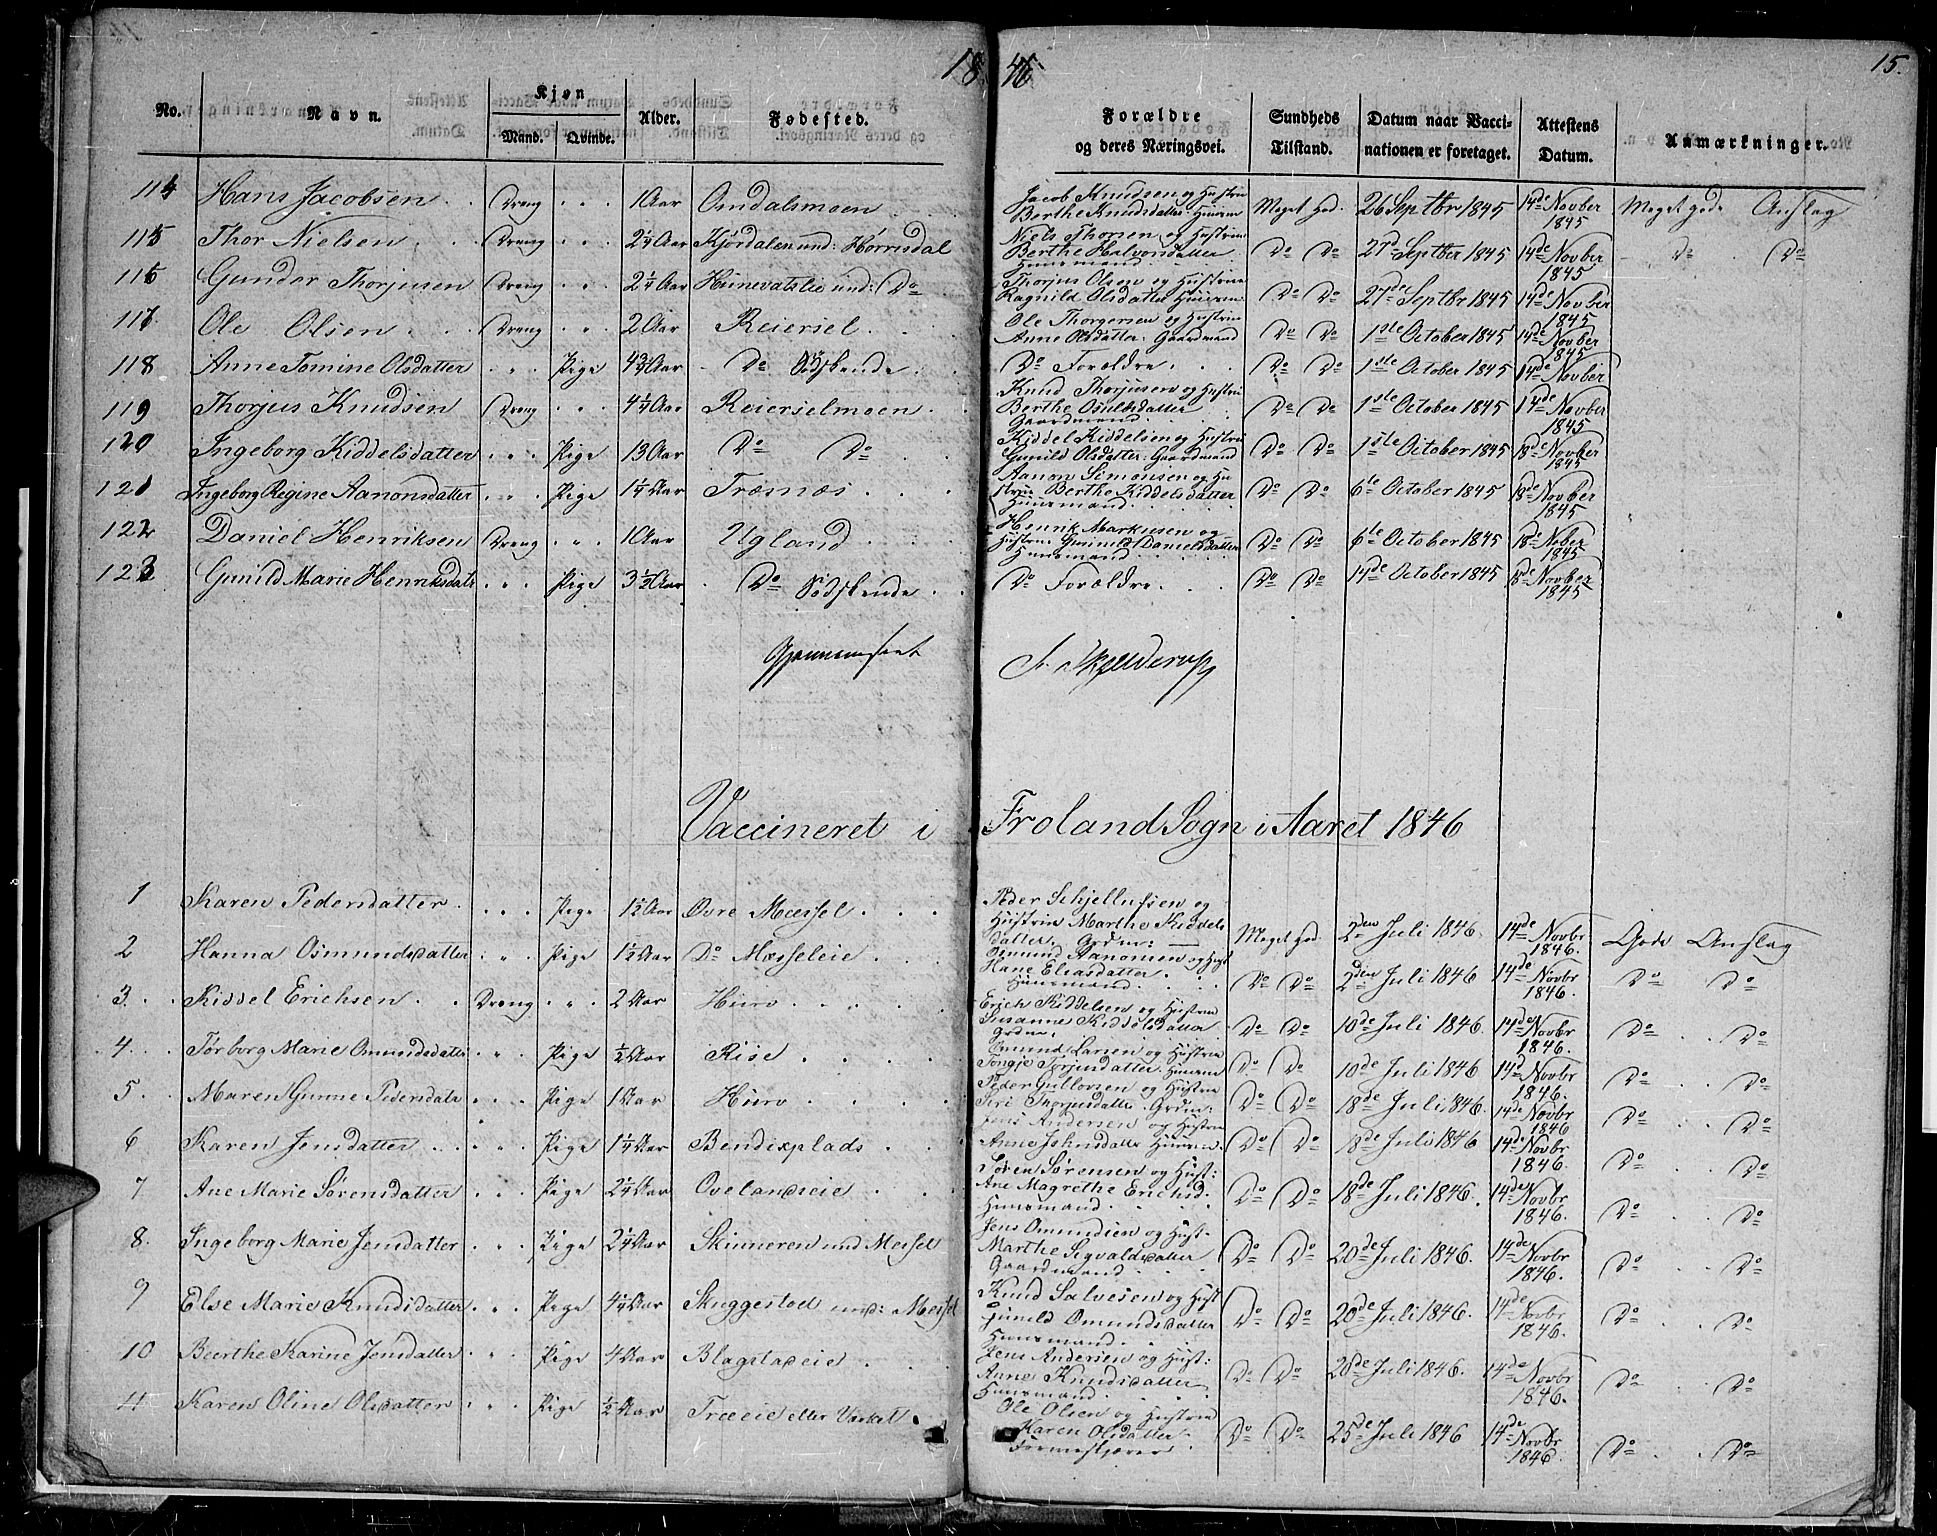 1845
15.
No. Navn. Kjøn Mand. Qvinde. Alder. Fødested. Forældre og deres Næringsvei. Sundheds Tilstand. Datum naar Vaccinationen er foretaget. Attestens Datum. Anmærkninger.
114 Hans Jacobsen Dreng " " 1 Aar Omdalsmoen Jacob Knudsen og Hustrue Berthe Knudsdatter Huusm Meget God 26 Septbr 1845 14de Novber 1845 Meget gode Anslag
115 Thor Nielsen Dreng " " 2 1/4 Aar Kjørdalen und: Hørrisdal Niels Thorsen og Hustrue Berthe Halvorsdatter Huusmand Do Do 27de Septber 1845 14de Novber 1845 Do Do
116 Gunder Thorjusen Dreng " " 2 1/4 Aar Hunevatslie und: Do Thorjus Olsen og Hustrue Ragnild Olsdatter Huusm Do Do 27de Septbr 1845 14de Novber 1845
117 Ole Olsen Dreng " " 2 Aar Reiersel Ole Thorgersen og Hustrue Anne Olsdatter: Gaardmand Do Do 1ste October 1845 14de Novber 1845
118 Anne Tomine Olsdatter " " Pige 4 3/4 Aar Do Södskende Do Forældre Do Do 1ste October 1845 14de Novber
119 Thorjus Knudsen Dreng " " 4 1/4 Aar Reierselmoen Knud Thorjusen og Hustrue Berthe Osulsdatter Gaardmand Do Do 1ste October 1845 14de Novber 1845
120 Ingeborg Kiddelsdatter " " Pige 13 Aar Do Do Kiddel Kiddelsen og Hustrue Gunild Olsdatter: Gaardmand Do Do 1ste October 1845 18de Novber 1845
121 Ingeborg Regine Aanonsdatter " " Pige 1 1/4 Aar Træsnæs Aanon Simonsen og Hustrue Berthe Kiddelsdatter Huusmand Do Do 6te October 1845 18de Novber 1845
122 Daniel Henriksen Dreng " " 1 Aar Ugland Henrik Markusen og Hustrue Gunild Danielsdatter Huusmand Do Do 6te October 1845 18de Nober 1845
123 Gunild Marie Henriksdatr " " Pige 3 1/2 Aar Do Södskende Do Forældre Do Do 14de October 1845 18de Novber 1845
Gjennemseet
J. Skjelderup
Vaccineret i Froland Sogn i Aaret 1846
1 Karen Pedersdatter " " Pige 1 1/2 Aar Øvre Mæssel Peder Schjellufsen og Hustrue Marthe Kiddelsdatter, Grdm: Meget God 2den Juli 1846 14de Novbr 1846. Gode Anslag
2 Hanna Osmundsdatter " " Pige 1 1/2 Aar Do Mæsseleie Osmund Aanonsen og Hust Hane Eliasdatter Huusmand Do Do 2den Juli 1846 14de Novbr 1846. Do Do
3. Kiddel Erichsen Dreng " " 2 Aar Hurv Erich Kiddelsen og Hustrue Susanne Kiddelsdatter Grdm. Do Do 10de Juli 1846 14de Novbr 1846. Do Do
4. Tørborg Marie Omundsdatter " " Pige 1/2 Aar Rise Omund Larsen og Hustrue Tongje Terjesdatter Huusm Do Do 10de Juli 1846 14d Novbr 1846. Do Do
5. Maren Gunne Pedersdatr " " Pige 1 Aar Hurv Peder Gullovsen og Hustrue Siri Thorjusdatter. Grdm: Do Do 18de Juli 1846. 14de Novbr 1846 Do Do
6 Karen Jensdatter " " Pige 1 1/4 Aar Bendixplads Jens Andersen og Hustrue Anne Huusm. Do Do 18de Juli 1846 14de Novbr 1846. Do Do
7 Ane Marie Sørensdatter " " Pige 2 1/4 Aar Ovelandseie Søren Sørensen og Hust: Ane Magrethe Erichsd. Huusmand Do Do 18de Juli 1846. 14de Novbr 1846. Do Do
8. Ingeborg Marie Jensdatter " " Pige 2 1/4 Aar Skinneren und Messel Jens Omundsen og Hust. Marthe Sigvaldsdatter Gaardmand Do Do 20de Juli 1846. 14de Novbr 1846. Do Do
9 Else Marie Knudsdatter " " Pige 4 1/4 Aar Skuggestod und: Messel Knud Salvesen og Hust Gunild Omundsdatter Huusmand Do Do 20de Juli 1846. 14de Novbr 1846. Do Do
10 Beerthe Karine Jensdatter " " Pige 4 Aar Blagstadeie Jens Andersen og Hust: Anne Knudsdatter Huusmand Do Do 20de Juli 1846. 14de Novbr 1846. Do Do
11 Karen Oline Olsdatter " " Pige 1/2 Aar Træeie eller Værket. Ole Olsen og Hustrue Karen Olsdatter Do Do 25de Juli 1846 14de Novbr 1846 Do Do